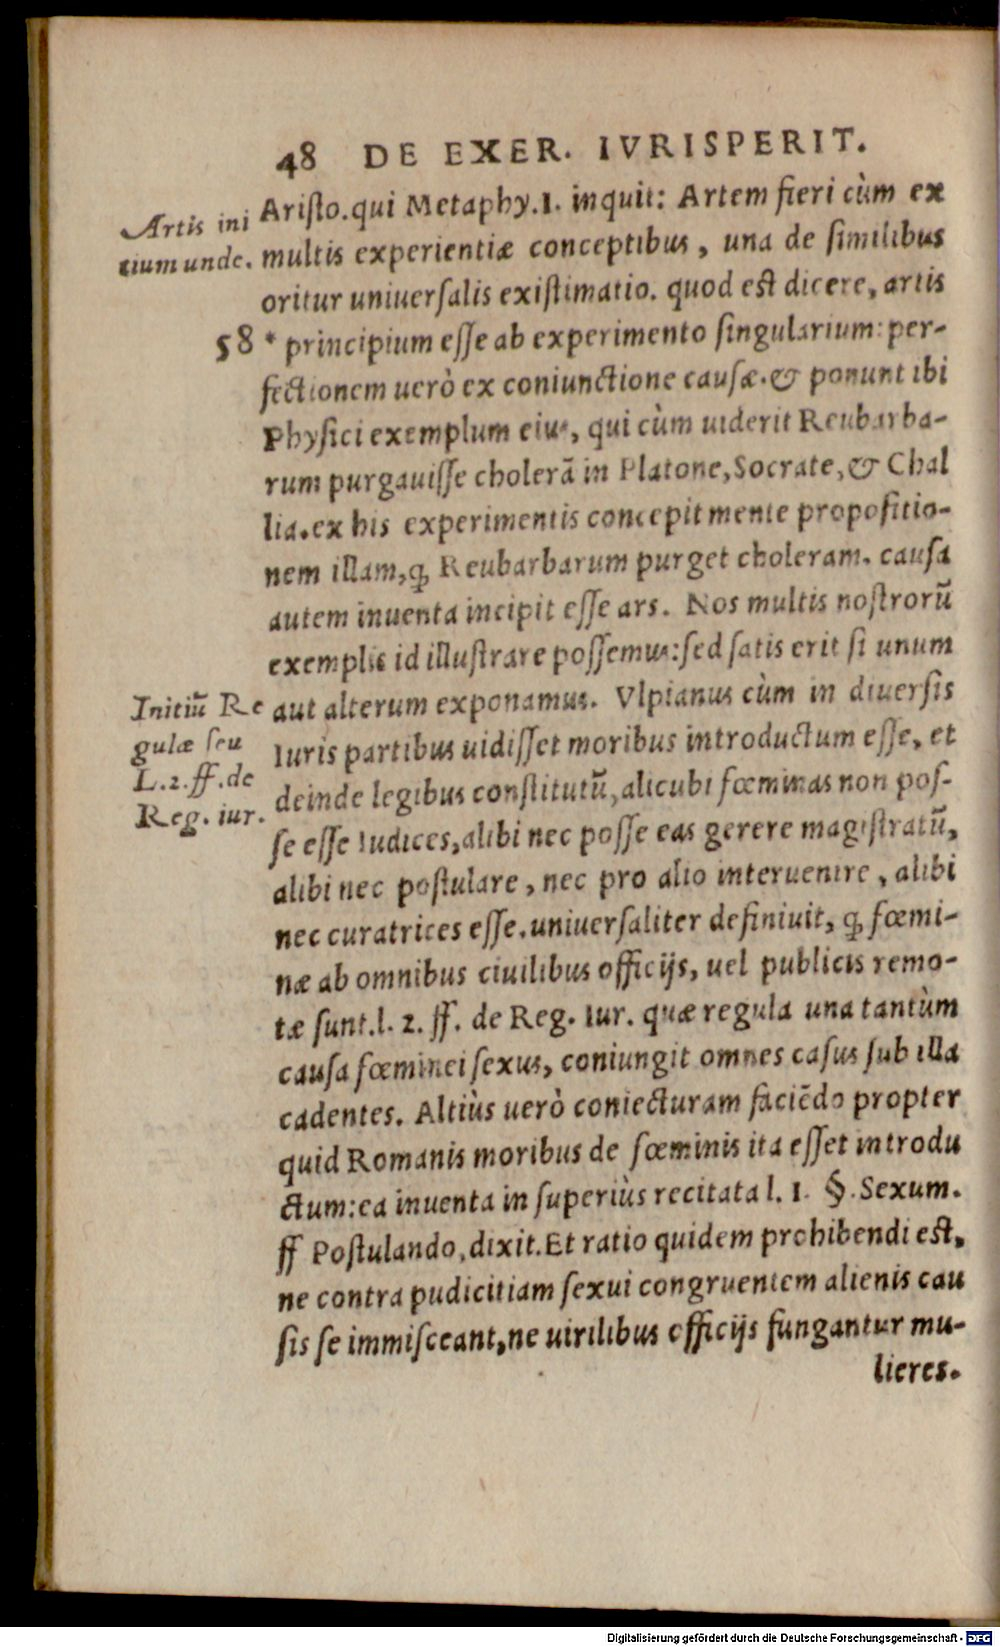 48 DE EXER. IVRISPERIT.
Artis ini
tium unde.
Aristo.qui Metaphy.1. inquit: Artem fieri cùm ex
multis experientiæ conceptibus, una de similibus
oritur uniuersalis existimatio. quod est dicere, artis
58 * principium esse ab experimento singularium: per-
fectionem uerò ex coniunctione causæ.& ponunt ibi
Physici exemplum eius, qui cùm uiderit Reubarba-
rum purgauisse cholerã in Platone, Socrate, & Chal
lia.ex his experimentis concepit mente propositio-
nem illam, ꝙ Reubarbarum purget choleram. causa
autem inuenta incipit esse ars. Nos multis nostrorũ
exemplis id illustrare possemus:sed satis erit si unum
Initiũ Re
gulæ seu
L.2.ff.de
Reg. iur.
aut alterum exponamus. Vlpianus cùm in diuersis
Iuris partibus uidisset moribus introductum esse, et
deinde legibus constitutũ, alicubi fœminas non pos-
se esse Iudices, alibi nec posse eas gerere magistratũ,
alibi nec postulare, nec pro alio interuenire, alibi
nec curatrices esse.uniuersaliter definiuit, ꝙ fœmi-
næ ab omnibus ciuilibus officijs, uel publicis remo-
tæ sunt.l. 2. ff. de Reg. Iur. quæ regula una tantùm
causa fœminei sexus, coniungit omnes casus sub illa
cadentes. Altiùs uerò coniecturam faciẽdo propter
quid Romanis moribus de fœminis ita esset introdu
ctum:ea inuenta in superiùs recitata l. 1. §. Sexum.
ff Postulando, dixit.Et ratio quidem prohibendi est,
ne contra pudicitiam sexui congruentem alienis cau
sis se immisceant, ne uirilibus officijs fungantur mu-
lieres.
Digitalisierung gefördert durch die Deutsche Forschungsgemeinschaft - DFG